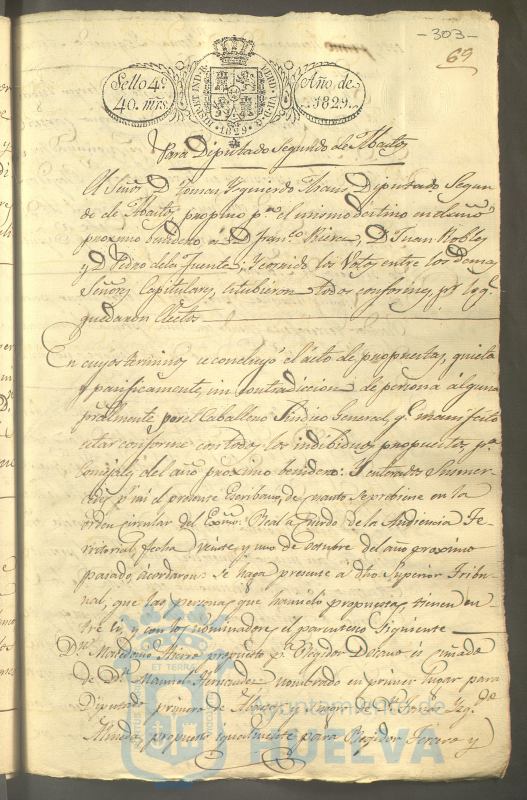 -303-
69
Sello 4º
40. mrs.
HISPAN. ET IND. REX
FERD. VII. D. G.
1829
Año de
1829.
Para Diputado Segundo de Abastos
Al Señor D. Tomas Ysquierdo Diputado Segun
do de Abastos, propuso pª el mismo destino en el año
proximo benidero á D. Franco Riera, D. Juan Robles
y D. Pedro de la Fuente; y corrido los Votos entre los demas
Señores Capitulares, estubieron todos conformes, pr lo q.
quedaron electos
En cuyos terminos se concluyó el acto de propuestas, quieta
y pacificamente, sin contradiccion de persona alguna
pralmente por el Caballero Sindico General, q. manifestó
estar conforme con todos los indibiduos propuestos pª
Concejales del año proximo benidero: Y enterados Sus mer
cedes pr mi el presente Escribano, de quanto se previene en la
orden circular del Exmo. Real Acuerdo de la Audiencia Te
rritorial, fecha veinte y uno de octubre del año proximo
pasado, acordaron: Se haga presente á dho Superior Tribu
nal, que las personas que han sido propuestas, tienen en
tre sí, y con los nominadores el parentesco siguiente
Dn. propuesto pª Regidor Decano es cuñado
de Dn. Manuel Hernandez nombrado en primer lugar para
Diputado primero de Abastos, y
propuesto igualmente para Regidor Tercero y
ET TERRAE
Ayuntamiento de
HUELVA